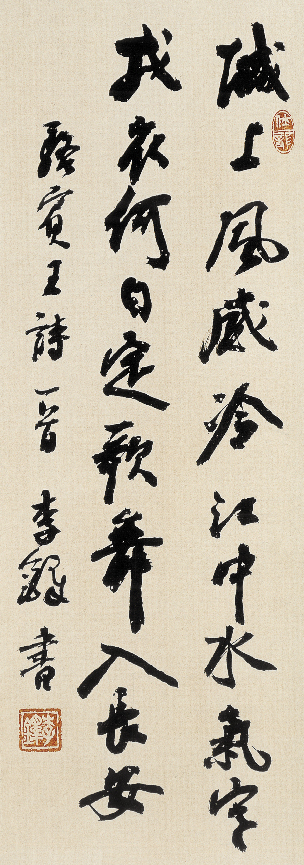 城上風威冷江中水氣寒
戎衣何日定歌舞入長安
駱賓王詩一首 李鐸書
李鐸